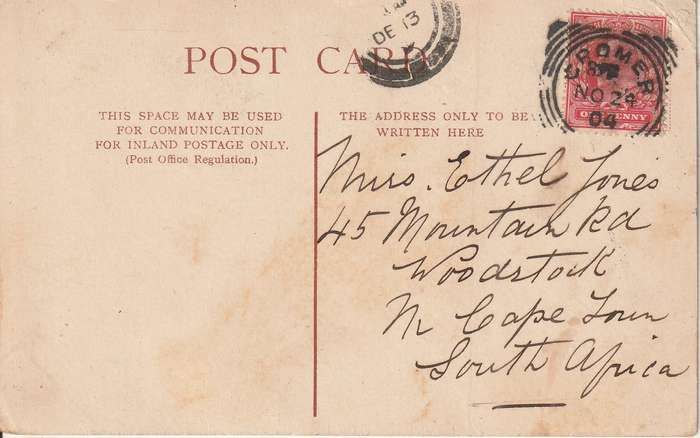 POST CARD
DE 13
CROMER
NO 24
04
ONE PENNY
THIS SPACE MAY BE USED
FOR COMMUNICATION
FOR INLAND POSTAGE ONLY.
(Post Office Regulation.)
THE ADDRESS ONLY TO BE
WRITTEN HERE
Miss. Ethel Jones
45 Mountain Rd
Woodstock
Nr Cape Town
South Africa